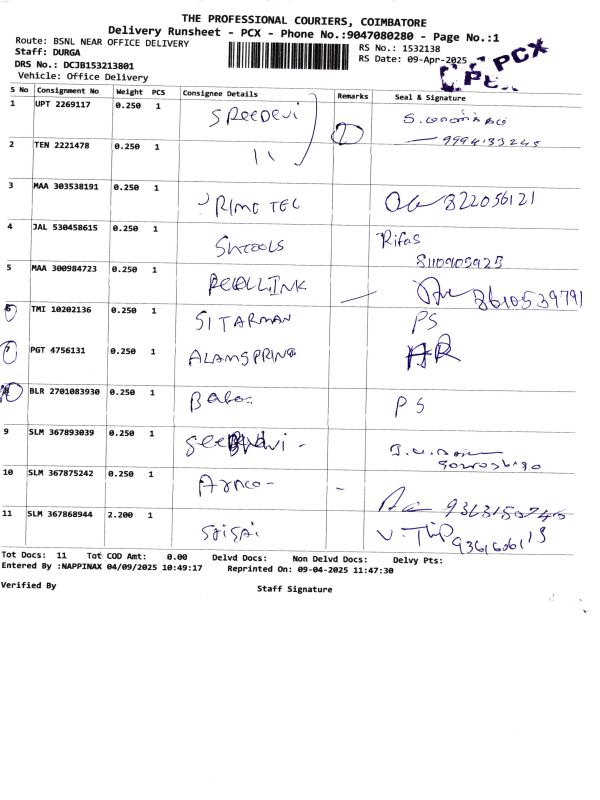 THE PROFESSIONAL COURIERS, COIMBATORE
Delivery Runsheet - PCX - Phone No.:9047080280 - Page No.:1
Route: BSNL NEAR OFFICE DELIVERY
RS No.: 1532138
Staff: DURGA
RS Date: 09-Apr-2025
PCX
DRS No.: DCJB153213801
Vehicle: Office Delivery
S No Consignment No Weight PCS Consignee Details Remarks Seal & Signature
1 UPT 2269117 0.250 1 SREEDEVI 2
9994133245
2 TEN 2221478 0.250 1 11
3 MAA 303538191 0.250 1 PRIME TEC 822056121
4 JAL 530458615 0.250 1 Rifas
8110905925
5 MAA 300984723 0.250 1 8610539791
6 TMI 10202136 0.250 1 SITARMAN PS
7 PGT 4756131 0.250 1 ALAMSPRING AR
8 BLR 2701083930 0.250 1 PS
9 SLM 367893039 0.250 1
10 SLM 367875242 0.250 1
11 SLM 367868944 2.200 1 saisai
Tot Docs: 11 Tot COD Amt: 0.00 Delvd Docs: Non Delvd Docs: Delvy Pts:
Entered By :NAPPINAX 04/09/2025 10:49:17 Reprinted On: 09-04-2025 11:47:30
Verified By
Staff Signature